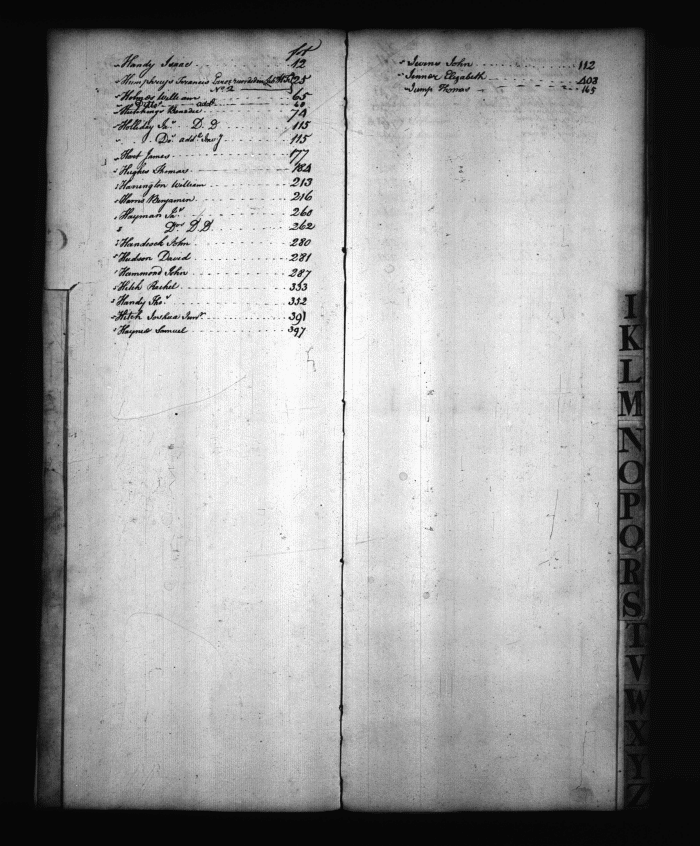 fol
Handy Isaac 12
Humphreys Francis 25
No. 2
Hodges William 65
Ditto add. 40
Hutchings 74
Holliday Ja.r D. D 115
Do. add.l Inv.y 115
Hart James 177
Hughes Thomas 184
Harrington William 213
Harris Benjamin 216
Hayman Ja.s 260
Do. D. D. 262
Handcock John 280
Hudson David 281
Hammond John 287
Hitch Rachel 333
Handy Tho.s 352
Hitch Joshua Junr. 391
Haynes Samuel 397
John 112
Elizabeth 403
Jump Thomas 165
I
K
L
M
N
O
P
Q
R
S
T
V
W
X
Y
Z